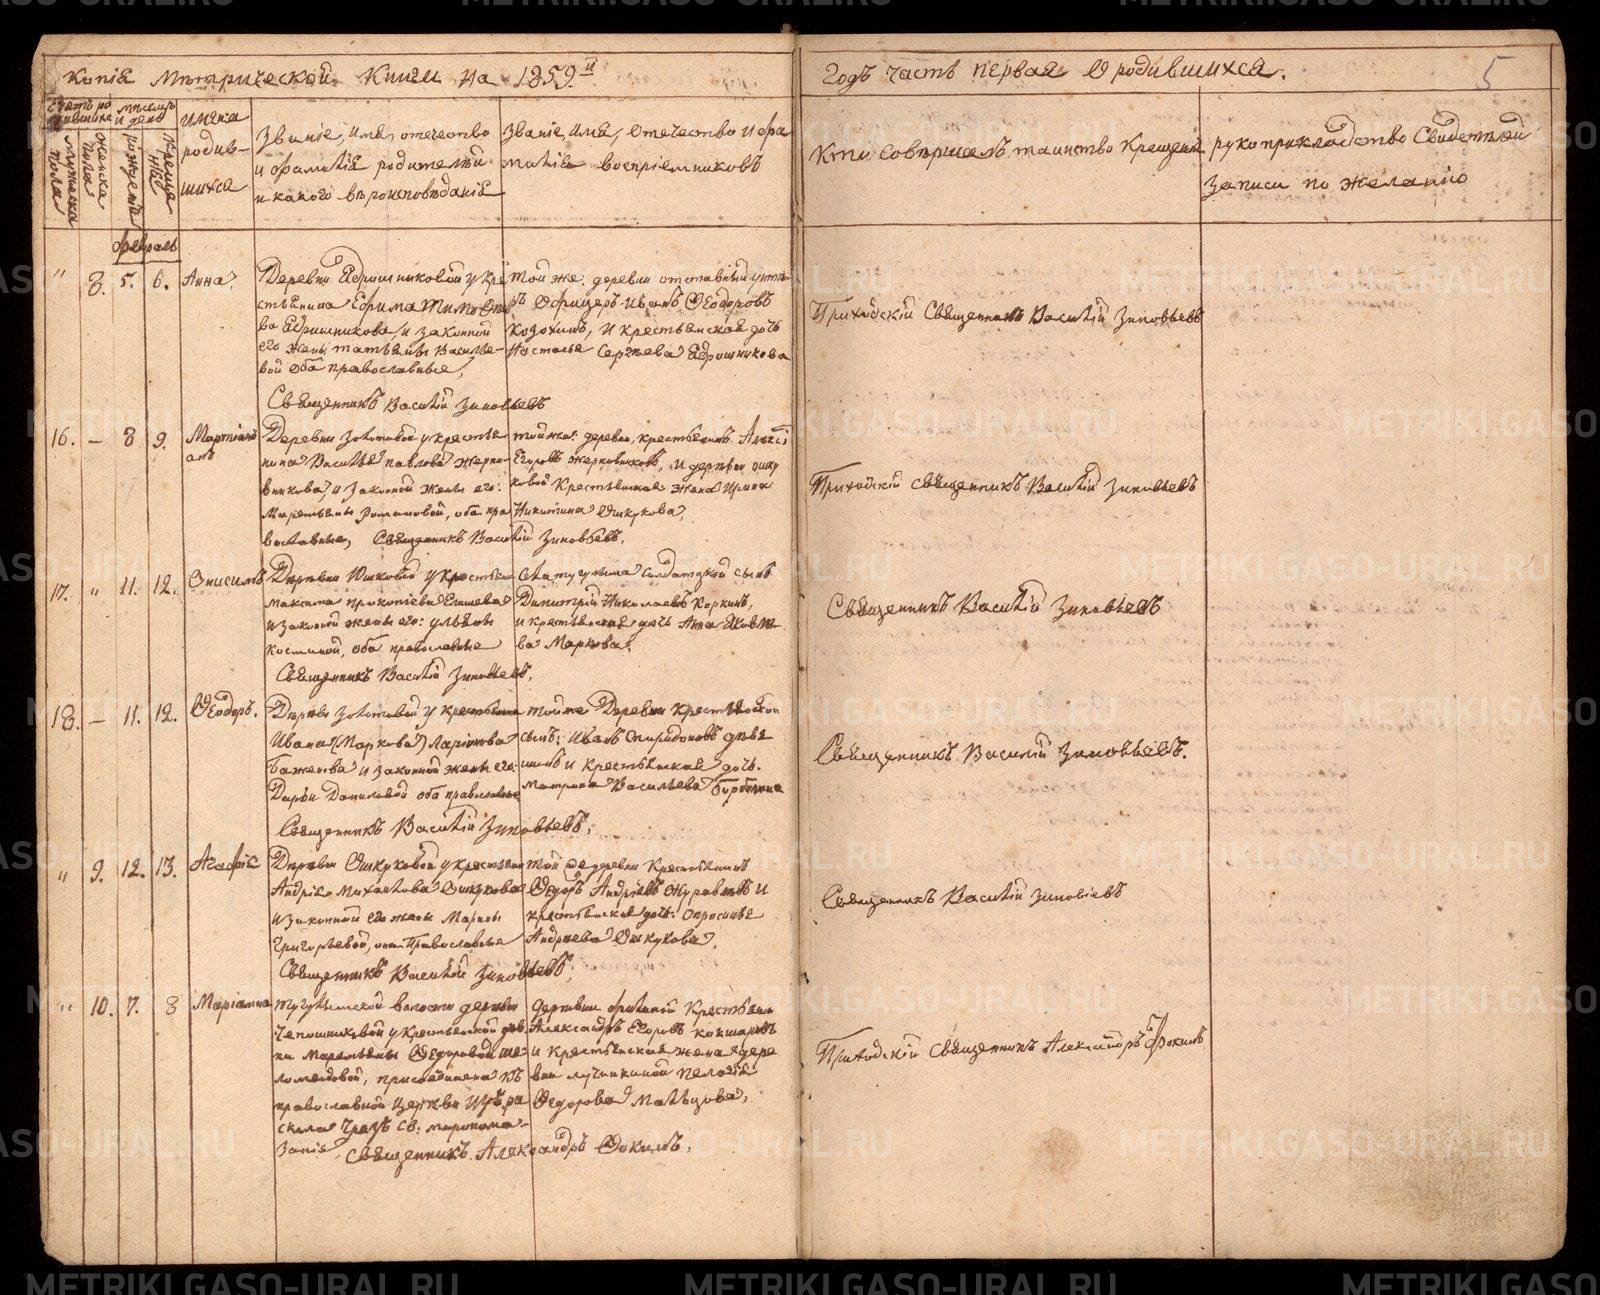 Копія Метрической Книги на 1859й
Годъ часть первая О родившихся.
5
Счетъ ро
дившихся
мѣсяцъ
и день
мужеска
пола
женска
пола
рожденія
крещенія
имяна
родив-
шихся
Званіе, имя, отечество
и фамилія родителей
и какого вѣроисповѣданія
Званіе, имя, отечество и фа
милія воспріемниковъ
Кто совершалъ таинство Крещенія
рукоприкладство Свидетелей
Записи по желанію
февраль
" 8. 5. 6. Анна.
Деревни Ядрышниковой у кре
стьянина Ефима Тимофее
ва Ядрышникова, и законной
его жены татьяны Василье-
вой оба православные,
Священникъ Василій Зиновьевъ
той же деревни отставной унте
ръ Офицеръ Иванъ Ѳеодоровъ
и крестьянская дочь
Настасья Сергѣева Ядрышникова
Приходскій Священникъ Василій Зиновьевъ
16. – 8 9. Мартині
анъ
Деревни Золотовой у крестья
нина Василья павлова жерно-
вникова, и законной жены его:
Маремьяны Романовой, оба пра
вославные, Священникъ Василій Зиновьевъ.
той же деревни, крестьянинъ Алексѣ
Егоровъ жерновниковъ, и деревни ошку
ковой Крестьянская жена Ирина
Никитина Ошкукова,
Приходскій священникъ Василій Зиновьевъ
17. " 11. 12. Онисимъ
Деревни Юшковой у Крестьян
максима прокопіева Елишева
и законной жены его: ульяны
костиной, оба православные
Священникъ Василій Зиновьевъ,
солдатской сынъ
Димитрій Николаевъ Коркинъ,
и крестьянская дочь Анна Яковле-
ва Маркова,
Священникъ Василій Зиновьевъ
18. – 11. 12. Ѳеодоръ.
Деревни Золотовой у крестьянина
Ивана (Маркова) Ларіонова
Баженова и законной жены его:
Дарьи Даниловой оба православные
Священникъ Василій Зиновьевъ,
той же Деревни Крестьянской
сынъ: Иванъ Спиридоновъ
и Крестьянская дочь.
матрена Васильева
Священникъ Василій Зиновьевъ.
" 9. 12. 13. Агафія
Деревни Ошкуковой у крестьяни
Андрея Михайлова Ошкукова
и законной его жены Марины
Григорьевой, они Православные
Священникъ Василій Зиновьевъ,
той же деревни Крестьянинъ
Ѳедоръ Андреевъ Журавлевъ и
крестьянская дочь: Опросинья
Андреева Ошкукова,
Священникъ Василій Зиновіевъ
" 10. 7. 8 Маріамна
тугулымской волости деревни
у Крестьянской дев
ки Маремьяны Ѳедоровой ше-
ломенцовой, присоединена къ
православной Церкви изъ ра
скола чрезъ св: миропома-
заніе, Священникъ Александръ Ѳокинъ,
деревни Крестьянин
Александръ Егоровъ кокшаровъ
и крестьянская жена дере
вни лучинкиной Пелагія
Ѳедорова Мальцова,
Приходскій священникъ Александръ Ѳокинъ